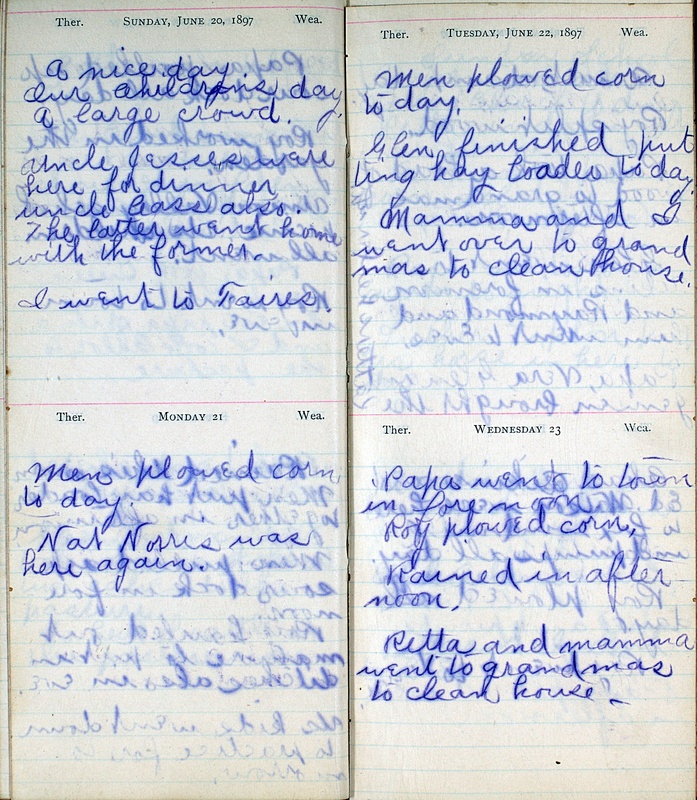 Ther. SUNDAY, JUNE 20, 1897 Wea.
A nice day
Our childrens day
A large crowd.
Uncle Jesses were
here for dinner
uncle Gass also.
The latter went home
with the former.
I went to Faires.
Ther. MONDAY 21 Wea.
Men plowed corn
to day.
Nat Norris was
here again.
Ther. TUESDAY, JUNE 22, 1897 Wea.
Men plowed corn
to day.
Glen finished put
ting hay loader today.
Mamma and I
went over to grand
mas to clean house.
Ther. WEDNESDAY 23 Wea.
Papa went to town
in fore noon
Roy plowed corn,
Rained in after
noon.
Retta and mamma
went to grandmas
to clean house.